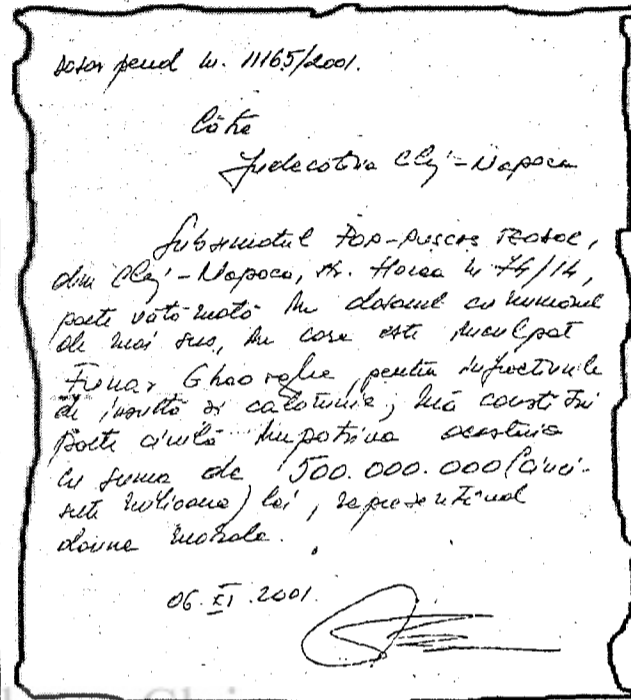 Dosar penal nr. 11165/2001.
Către
Judecătoria Cluj-Napoca
Subsemnatul Pop-Pușcaș Teodor,
din Cluj-Napoca, str. Horea nr 74/14,
parte vătămată în dosarul cu numărul
de mai sus, în care este inculpat
Funar Gheorghe, pentru infracțiunile
de insultă și calomnie, mă constitui
parte civilă împotriva acestuia
cu suma de 500.000.000 (cinci-
sute milioane) lei, reprezentând
daune morale.
06.XI.2001.